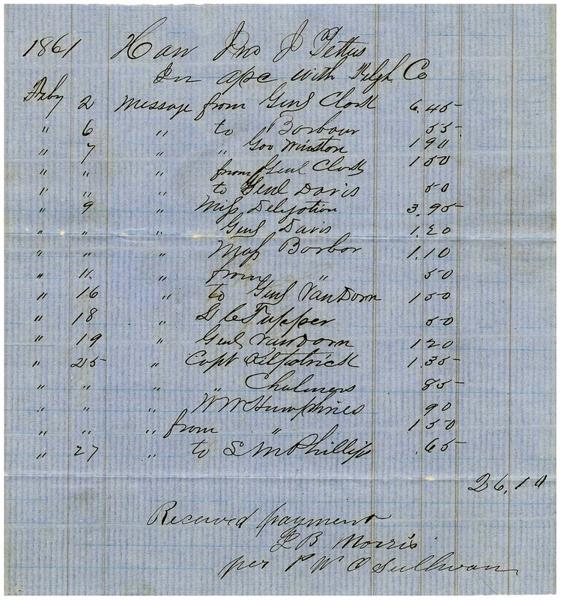 1861 Hon Jno J Pettus
In a/c with Telgh Co
Feby 2 Message from Genl Clark 6.45
" 6 " to Barbour 55
" 7 " " Gov Winston 1 90
" " " from Genl Clark 1 50
" " " to Genl Davis 50
" 9 " Miss Delegation 3.95
" " " Genl Davis 1.20
" " " Maj Barbor 1.10
" 11 " from " 50
" 16 " to Genl VanDorn 1 50
" 18 " D C Tupper 50
" 19 " Genl VanDorn 1 20
" 25 " Capt Kilpatrick 1.35
" " " " Chalmers 85
" " " W W Humphries 90
" " " from " 1 50
" 27 " to S M Phillips .65
26.10
Received payment
L B Morris
per P W O Sullivan